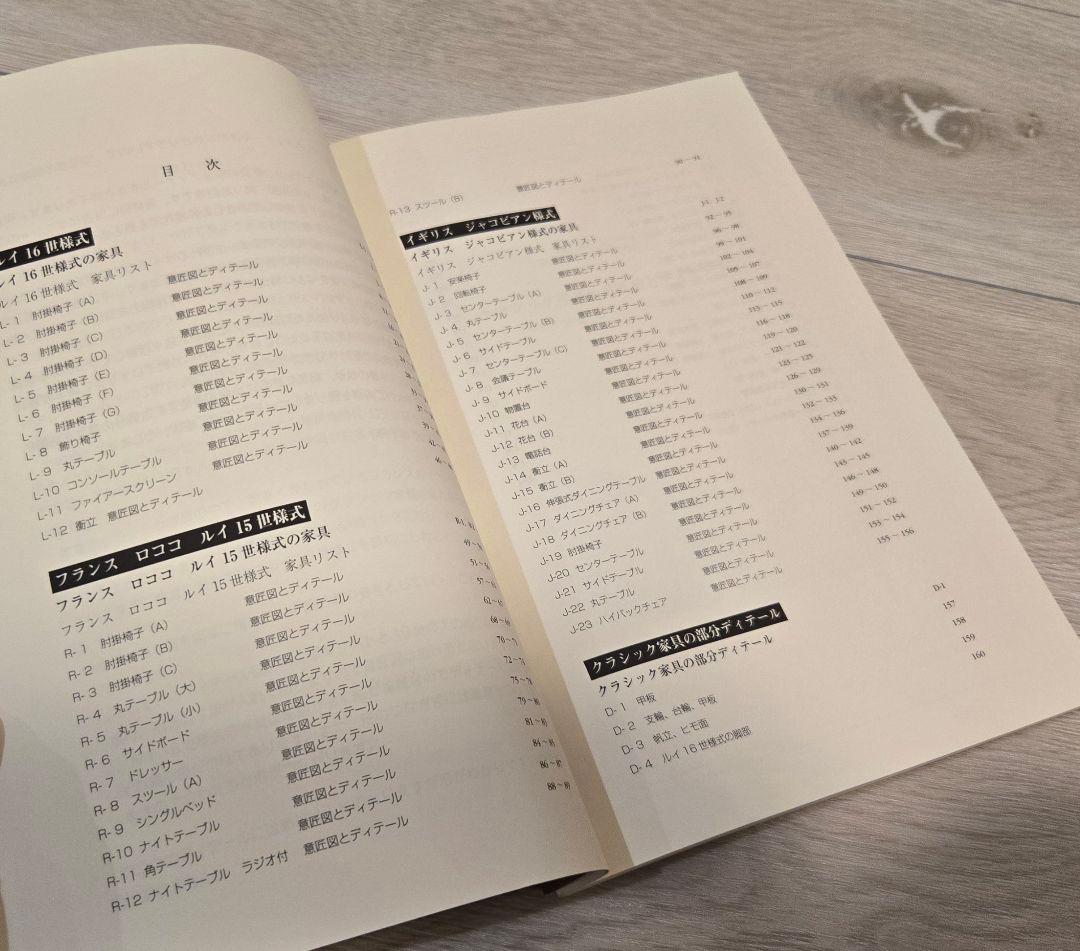 目 次
ルイ 16 世様式
ルイ 16 世様式の家具
ルイ 16 世様式 家具リスト
L- 1 肘掛椅子（A） 意匠図とディテール
L- 2 肘掛椅子（B） 意匠図とディテール
L- 3 肘掛椅子（C） 意匠図とディテール
L- 4 肘掛椅子（D） 意匠図とディテール
L- 5 肘掛椅子（E） 意匠図とディテール
L- 6 肘掛椅子（F） 意匠図とディテール
L- 7 肘掛椅子（G） 意匠図とディテール
L- 8 飾り椅子 意匠図とディテール
L- 9 丸テーブル 意匠図とディテール
L-10 コンソールテーブル 意匠図とディテール
L-11 ファイアースクリーン
L-12 衝立 意匠図とディテール
フランス ロココ ルイ 15 世様式
フランス ロココ ルイ 15 世様式の家具
フランス ロココ ルイ 15 世様式 家具リスト
R- 1 肘掛椅子（A） 意匠図とディテール
R- 2 肘掛椅子（B） 意匠図とディテール
R- 3 肘掛椅子（C） 意匠図とディテール
R- 4 丸テーブル（大） 意匠図とディテール
R- 5 丸テーブル（小） 意匠図とディテール
R- 6 サイドボード 意匠図とディテール
R- 7 ドレッサー 意匠図とディテール
R- 8 スツール（A） 意匠図とディテール
R- 9 シングルベッド 意匠図とディテール
R-10 ナイトテーブル 意匠図とディテール
R-11 角テーブル 意匠図とディテール
R-12 ナイトテーブル ラジオ付 意匠図とディテール
R-13 スツール（B） 意匠図とディテール 90～91
イギリス ジャコビアン様式
イギリス ジャコビアン様式の家具 J-1, J-2
イギリス ジャコビアン様式 家具リスト
J- 1 安楽椅子 意匠図とディテール 92～95
J- 2 回転椅子 意匠図とディテール 96～98
J- 3 センターテーブル（A） 意匠図とディテール 99～101
J- 4 丸テーブル 意匠図とディテール 102～104
J- 5 センターテーブル（B） 意匠図とディテール 105～107
J- 6 サイドテーブル 意匠図とディテール 108～109
J- 7 センターテーブル（C） 意匠図とディテール 110～112
J- 8 会議テーブル 意匠図とディテール 113～115
J- 9 サイドボード 意匠図とディテール 116～118
J-10 物置台 意匠図とディテール 119～120
J-11 花台（A） 意匠図とディテール 121～122
J-12 花台（B） 意匠図とディテール 123～125
J-13 電話台 意匠図とディテール 126～129
J-14 衝立（A） 意匠図とディテール 130～131
J-15 衝立（B） 意匠図とディテール 132～133
J-16 伸張式ダイニングテーブル 意匠図とディテール 134～136
J-17 ダイニングチェア（A） 意匠図とディテール 137～139
J-18 ダイニングチェア（B） 意匠図とディテール 140～142
J-19 肘掛椅子 意匠図とディテール 143～145
J-20 センターテーブル 意匠図とディテール 146～148
J-21 サイドテーブル 意匠図とディテール 149～150
J-22 丸テーブル 意匠図とディテール 151～152
J-23 ハイバックチェア 意匠図とディテール 153～154
155～156
クラシック家具の部分ディテール
クラシック家具の部分ディテール D-1
D- 1 甲板 157
D- 2 支輪、台輪、甲板 158
D- 3 帆立、ヒモ面 159
D- 4 ルイ 16 世様式の脚部 160